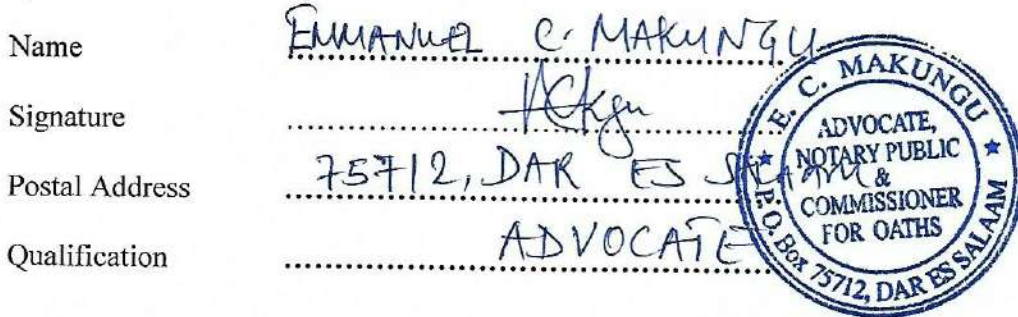 Name EMMANUEL C. MAKUNGU
Signature
Postal Address 75712, DAR ES SALAAM
Qualification ADVOCATE
E. C. MAKUNGU
ADVOCATE,
NOTARY PUBLIC
&
COMMISSIONER
FOR OATHS
P. O. Box 75712, DAR ES SALAAM